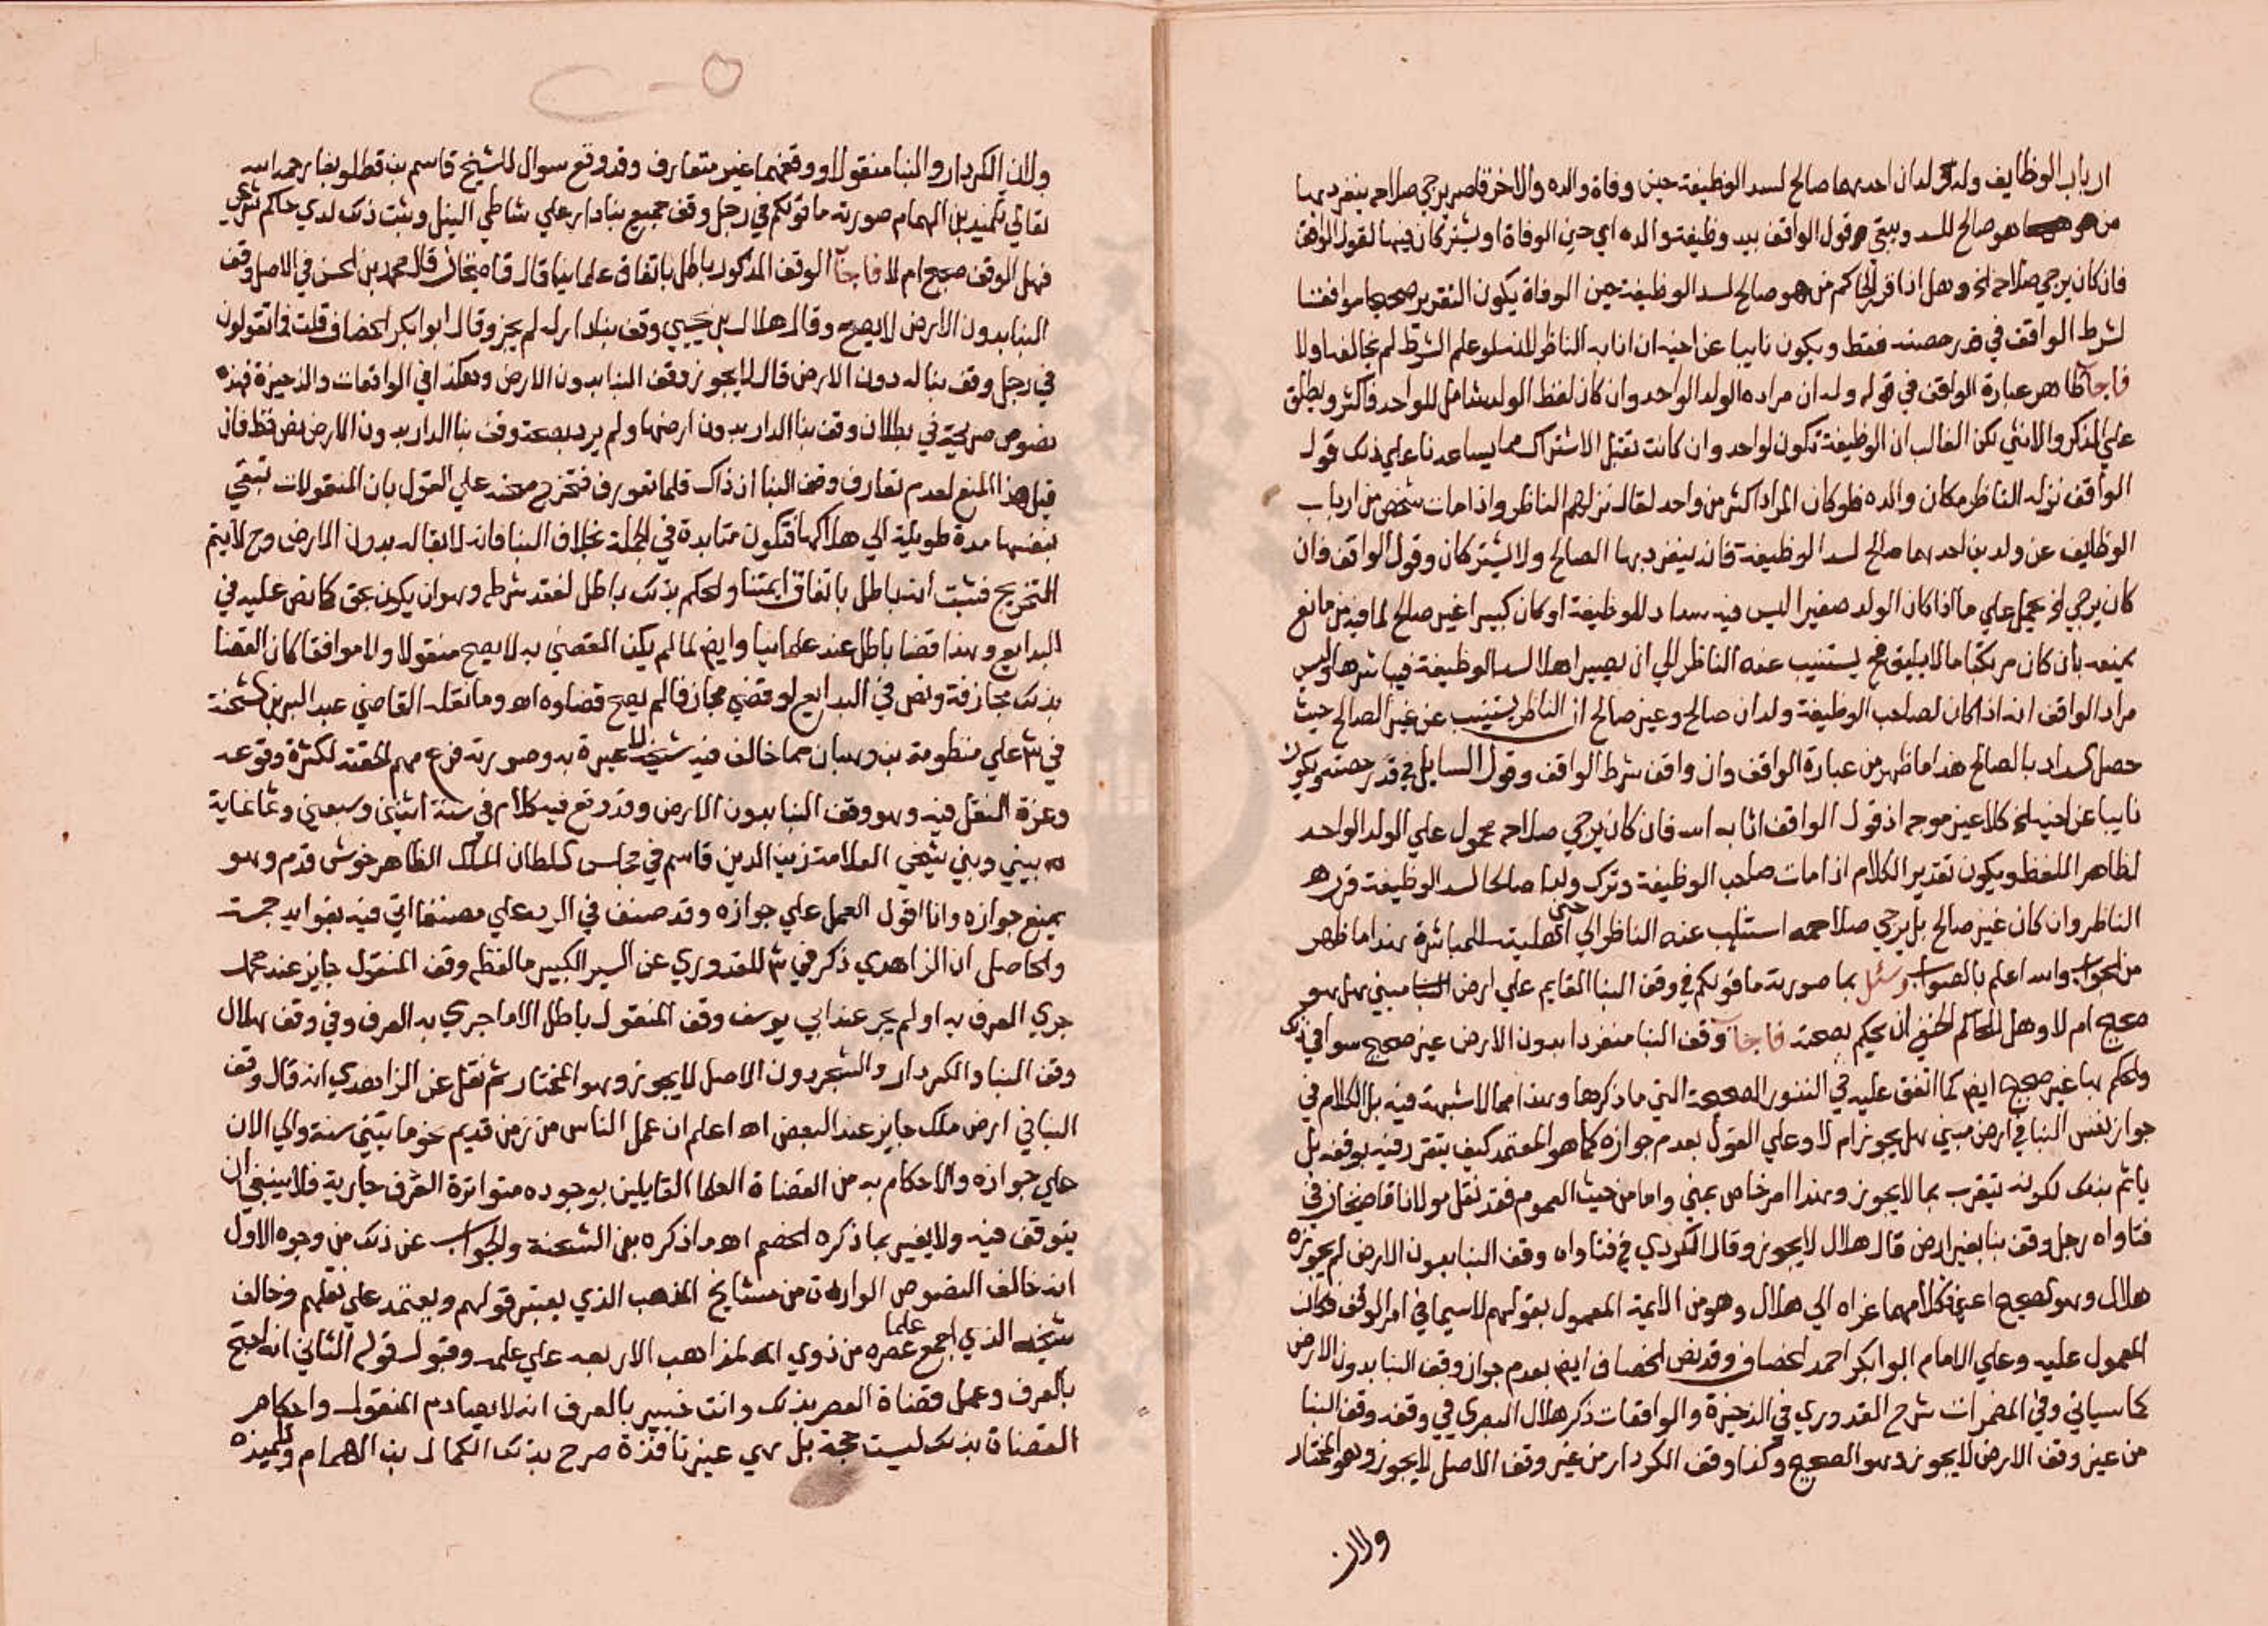 ارباب الوظايف وله ولدان احدهما صالح لسد الوظيفة حين وفاة والده والاخر قاصر يرجي صلاحه ينفرد بها
من هو صالح للسد ويبقي قول الواقف بيد وظيفة والده اي حين الوفاة او يشتركان فيها لقول الواقف
فان كان يرجي صلاحه الخ وهل اذا قرر الحاكم من هو صالح لسد الوظيفة حين الوفاة يكون التقرير صحيحا موافقا
لشرط الواقف في قدر حصته فقط ويكون نايبا عن اخيه ان انابه الناظر لانه لو علم الشرط لم يخالفه او لا
فاجاب ظاهر عبارة الواقف في قوله ولد ان مراده الولد الواحد وان كان لفظ الولد شامل للواحد فاكثر ويطلق
علي الذكر والانثي لكن الغالب ان الوظيفة تكون لواحد وان كانت تقبل الاشتراك مما يساعدنا علي ذلك قول
الواقف نزله الناظر مكان والده فلو كان المراد اكثر من واحد لقال نزلهم الناظر واذا مات شخص من ارباب
الوظايف عن ولدين احدهما صالح لسد الوظيفة فانه ينفرد بها الصالح ولا يشتركان وقول الواقف فان
كان يرجي الخ يحمل علي ما اذا كان الولد صغيرا ليس فيه سداد للوظيفة او كان كبيرا غير صالح لما فيه من مانع
يمنعه بان كان مرتكبا ما لا يليق فح يستنيب عنه الناظر الي ان يصير اهلا لسد الوظيفة فيباشرها وليس
مراد الواقف انه اذا كان لصاحب الوظيفة ولدان صالح وغير صالح ان الناظر يستنيب عن غير الصالح حيث
حصل السداد بالصالح هذا ما ظهر من عبارة الواقف وان وافق شرط الواقف وقول السايل في قدر حصته ويكون
نايبا عن اخيه الخ كلا غير موجه اذ قول الواقف اثابه الله فان كان يرجي صلاحه محمول علي الولد الواحد
لظاهر اللفظ ويكون تقدير الكلام اذا مات صاحب الوظيفة وترك ولدا صالحا لسد الوظيفة قرره
الناظر وان كان غير صالح بل يرجي صلاحه استناب عنه الناظر الي حين اهليته للمباشرة هذا ما ظهر
من الجواب والله اعلم بالصواب وسئل بما صورته ما قولكم في وقف البنا القايم علي ارض مبني هل هو
صحيح ام لا وهل للحاكم الحنفي ان يحكم بصحته فاجاب وقف البنا منفردا بدون الارض غير صحيح سوا في ذلك
والحكم بها غير صحيح ايضا كما اتفق عليه في النقول الصحيحة التي ما ذكرها وهذا مما لا شبهة فيه بل الكلام في
جواز نفس البنا في ارض مبني هل يجوز ام لا وعلي القول بعدم جوازه كما هو المعتمد كيف يتقرر فيه بوقفه بل
ياثم بذلك لكونه يتقرب بما لا يجوز وهذا امر خاص بمني واما من حيث العموم فقد نقل مولانا قاضيخان في
فتاواه رجل وقف بنا بغير ارض قال هلال لا يجوز وقال الكردي في فتاواه وقف البنا بدون الارض لم يجوزه
هلال وهو الصحيح اعني فكلامهما عزاه الي هلال وهو من الايمة المعمول بقولهم لاسيما في امر الوقف فكان
المعمول عليه وعلي الامام ابو ابكر احمد الخصاف وقد نص الخصاف ايضا بعدم جواز وقف البنا بدون الارض
كما سياتي وفي المضمرات شرح القدوري في الذخيرة والواقعات ذكر هلال البصري في وقفه وقف البنا
من غير وقف الارض لا يجوز وهو الصحيح وكذا وقف الكردار من غير وقف الاصل لا يجوز وهو المختار
ولان
ولان الكردار والبنا منقولا ووقفهما غير متعارف وقد وقع سوال للشيخ قاسم بن قطلوبغا رحمه الله
تعالي تلميذ بن الهمام صورته ما قولكم في رجل وقف جميع بنا دار علي شاطي النيل وثبت ذلك لدي حاكم شرعي
فهل الوقف صحيح ام لا فاجاب الوقف المذكور باطل باتفاق علماينا قال قاضيخان قال محمد بن الحسن في الاصل وقف
البنا بدون الارض لا يصح وقال هلال بن يحيي وقف بنا دار له لم يجز وقال ابو ابكر الخصاف قلت فما تقولون
في رجل وقف بنا له دون الارض قال لا يجوز وقف البنا بدون الارض وهكذا في الواقعات والذخيرة فهذه
نصوص صريحة في بطلان وقف بنا الدار بدون ارضها ولم يرد بصحة وقف بنا الدار بدون الارض نص قط فان
قيل هذا المنع لعدم تعارف وقف البنا اذ ذاك قلما تعورف فتخرج صحته علي القول بان المنقولات تبقي
بنفسها مدة طويلة الي هلاكها فتكون متابدة في الجملة بخلاف البنا فانه لا بقا له بدون الارض وح لا يتم
التخريج فثبت انه باطل باتفاق ايمتنا والحكم بذلك باطل لفقد شرطه وهو ان يكون بحق كما نص عليه في
البدايع وهذا قضا باطل عند علماينا وايضا لما لم يكن المقضي به لا يصح منقولا ولا موافقا كان القضا
بذلك مجازفة ونص في البدايع لو قضي مجازفا لم يصح قضاوه اه وما نقله القاضي عبد البر بن الشحنة
في ش علي منظومة بن وهبان مما خالف فيه شيخه لا عبرة به وصورته فرع مهم الحقته لكثرة وقوعه
وعزة النقل فيه وهو وقف البنا بدون الارض وقد وقع فيه كلام في سنة اثنين وسبعين وثمانماية
بيني وبين شيخي العلامة زين الدين قاسم في مجلس السلطان الملك الظاهر خوش قدم وهو
يمنع جوازه وانا اقول العمل علي جوازه وقد صنف في الرد علي مصنفا اتي فيه بفوايد جمة
والحاصل ان الزاهدي ذكر في ش للقدوري عن السير الكبير ما لفظه وقف المنقول جايز عند محمد
جري العرف به او لم يجر عند ابي يوسف وقف المنقول باطل الا ما جري به العرف وفي وقف هلال
وقف البنا والكردار والشجر دون الاصل لا يجوز وهو المختار ثم نقل عن الزاهدي انه قال وقف
البنا في ارض ملك جايز عند البعض اه اعلم ان عمل الناس من زمن قديم نحو مايتين سنة والي الان
علي جوازه والاحكام به من القضاة العلما القايلين بوجوده متواترة العرف جارية فلا ينبغي ان
يتوقف فيه ولا يغير بما ذكره الخصم اه وما ذكره بن الشحنة والجواب عن ذلك من وجوه الاول
انه خالف النصوص الواردة من مشايخ المذهب الذي يعتبر قولهم ويعتمد علي نقلهم وخالف
شيخه الذي اجمع علما عصره من ذوي المذاهب الاربعه علي علمه وقبول قوله الثاني انه احتج
بالعرف وعمل قضاة العصر بذلك وانت خبير بالعرف انه لا يصادم المنقول واحكام
القضاة بذلك ليست حجة بل هي غير نافذة صرح بذلك الكمال بن الهمام وتلميذه